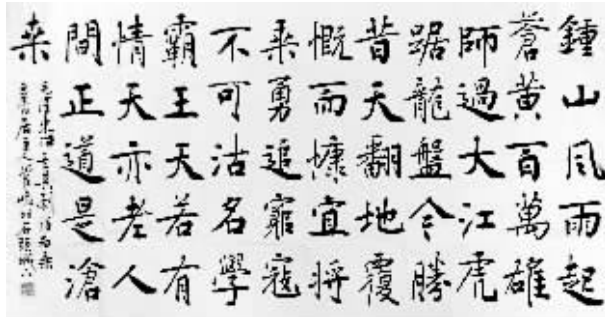 鍾山風雨起
蒼黃百萬雄
師過大江虎
踞龍盤今勝
昔天翻地覆
慨而慷宜將
乘勇追窮寇
不可沽名學
霸王天若有
情天亦老人
間正道是滄
桑